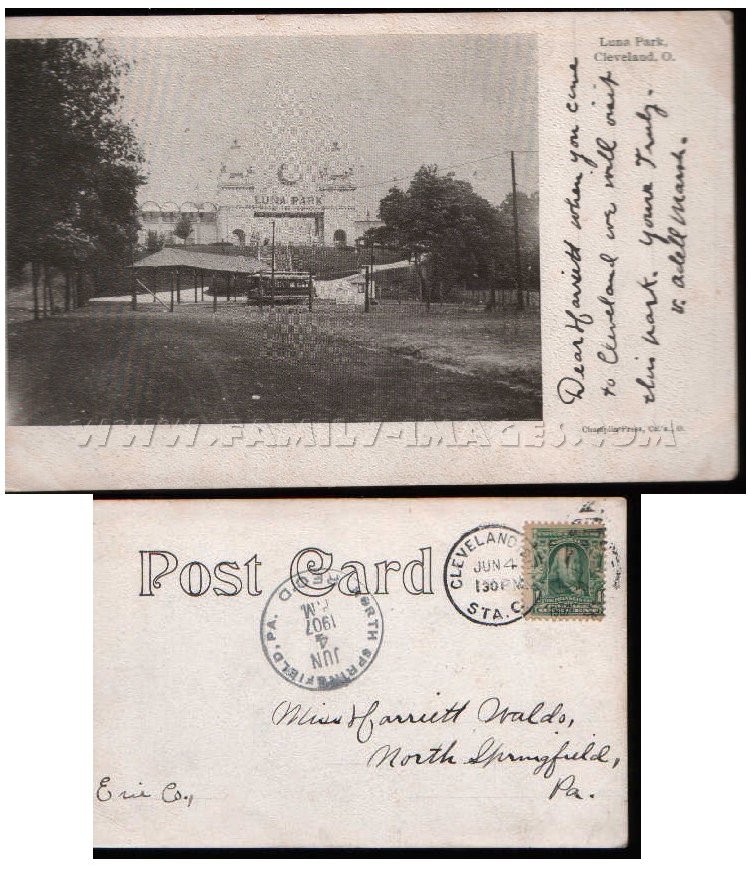 Luna Park,
Cleveland, O.
LUNA PARK
Dear Harriett when you come
to Cleveland we will visit
this park. Yours Truly.
V. Adell Marsh.
Champlin Press, Col's., O.
WWW.FAMILY-IMAGES.COM
Post Card
CLEVELAND
JUN 4
1 30 PM
STA. C.
NORTH SPRINGFIELD, PA.
REC'D
JUN
4
1907
P.M.
Miss Harriett Walds,
North Springfield,
Pa.
Erie Co.,